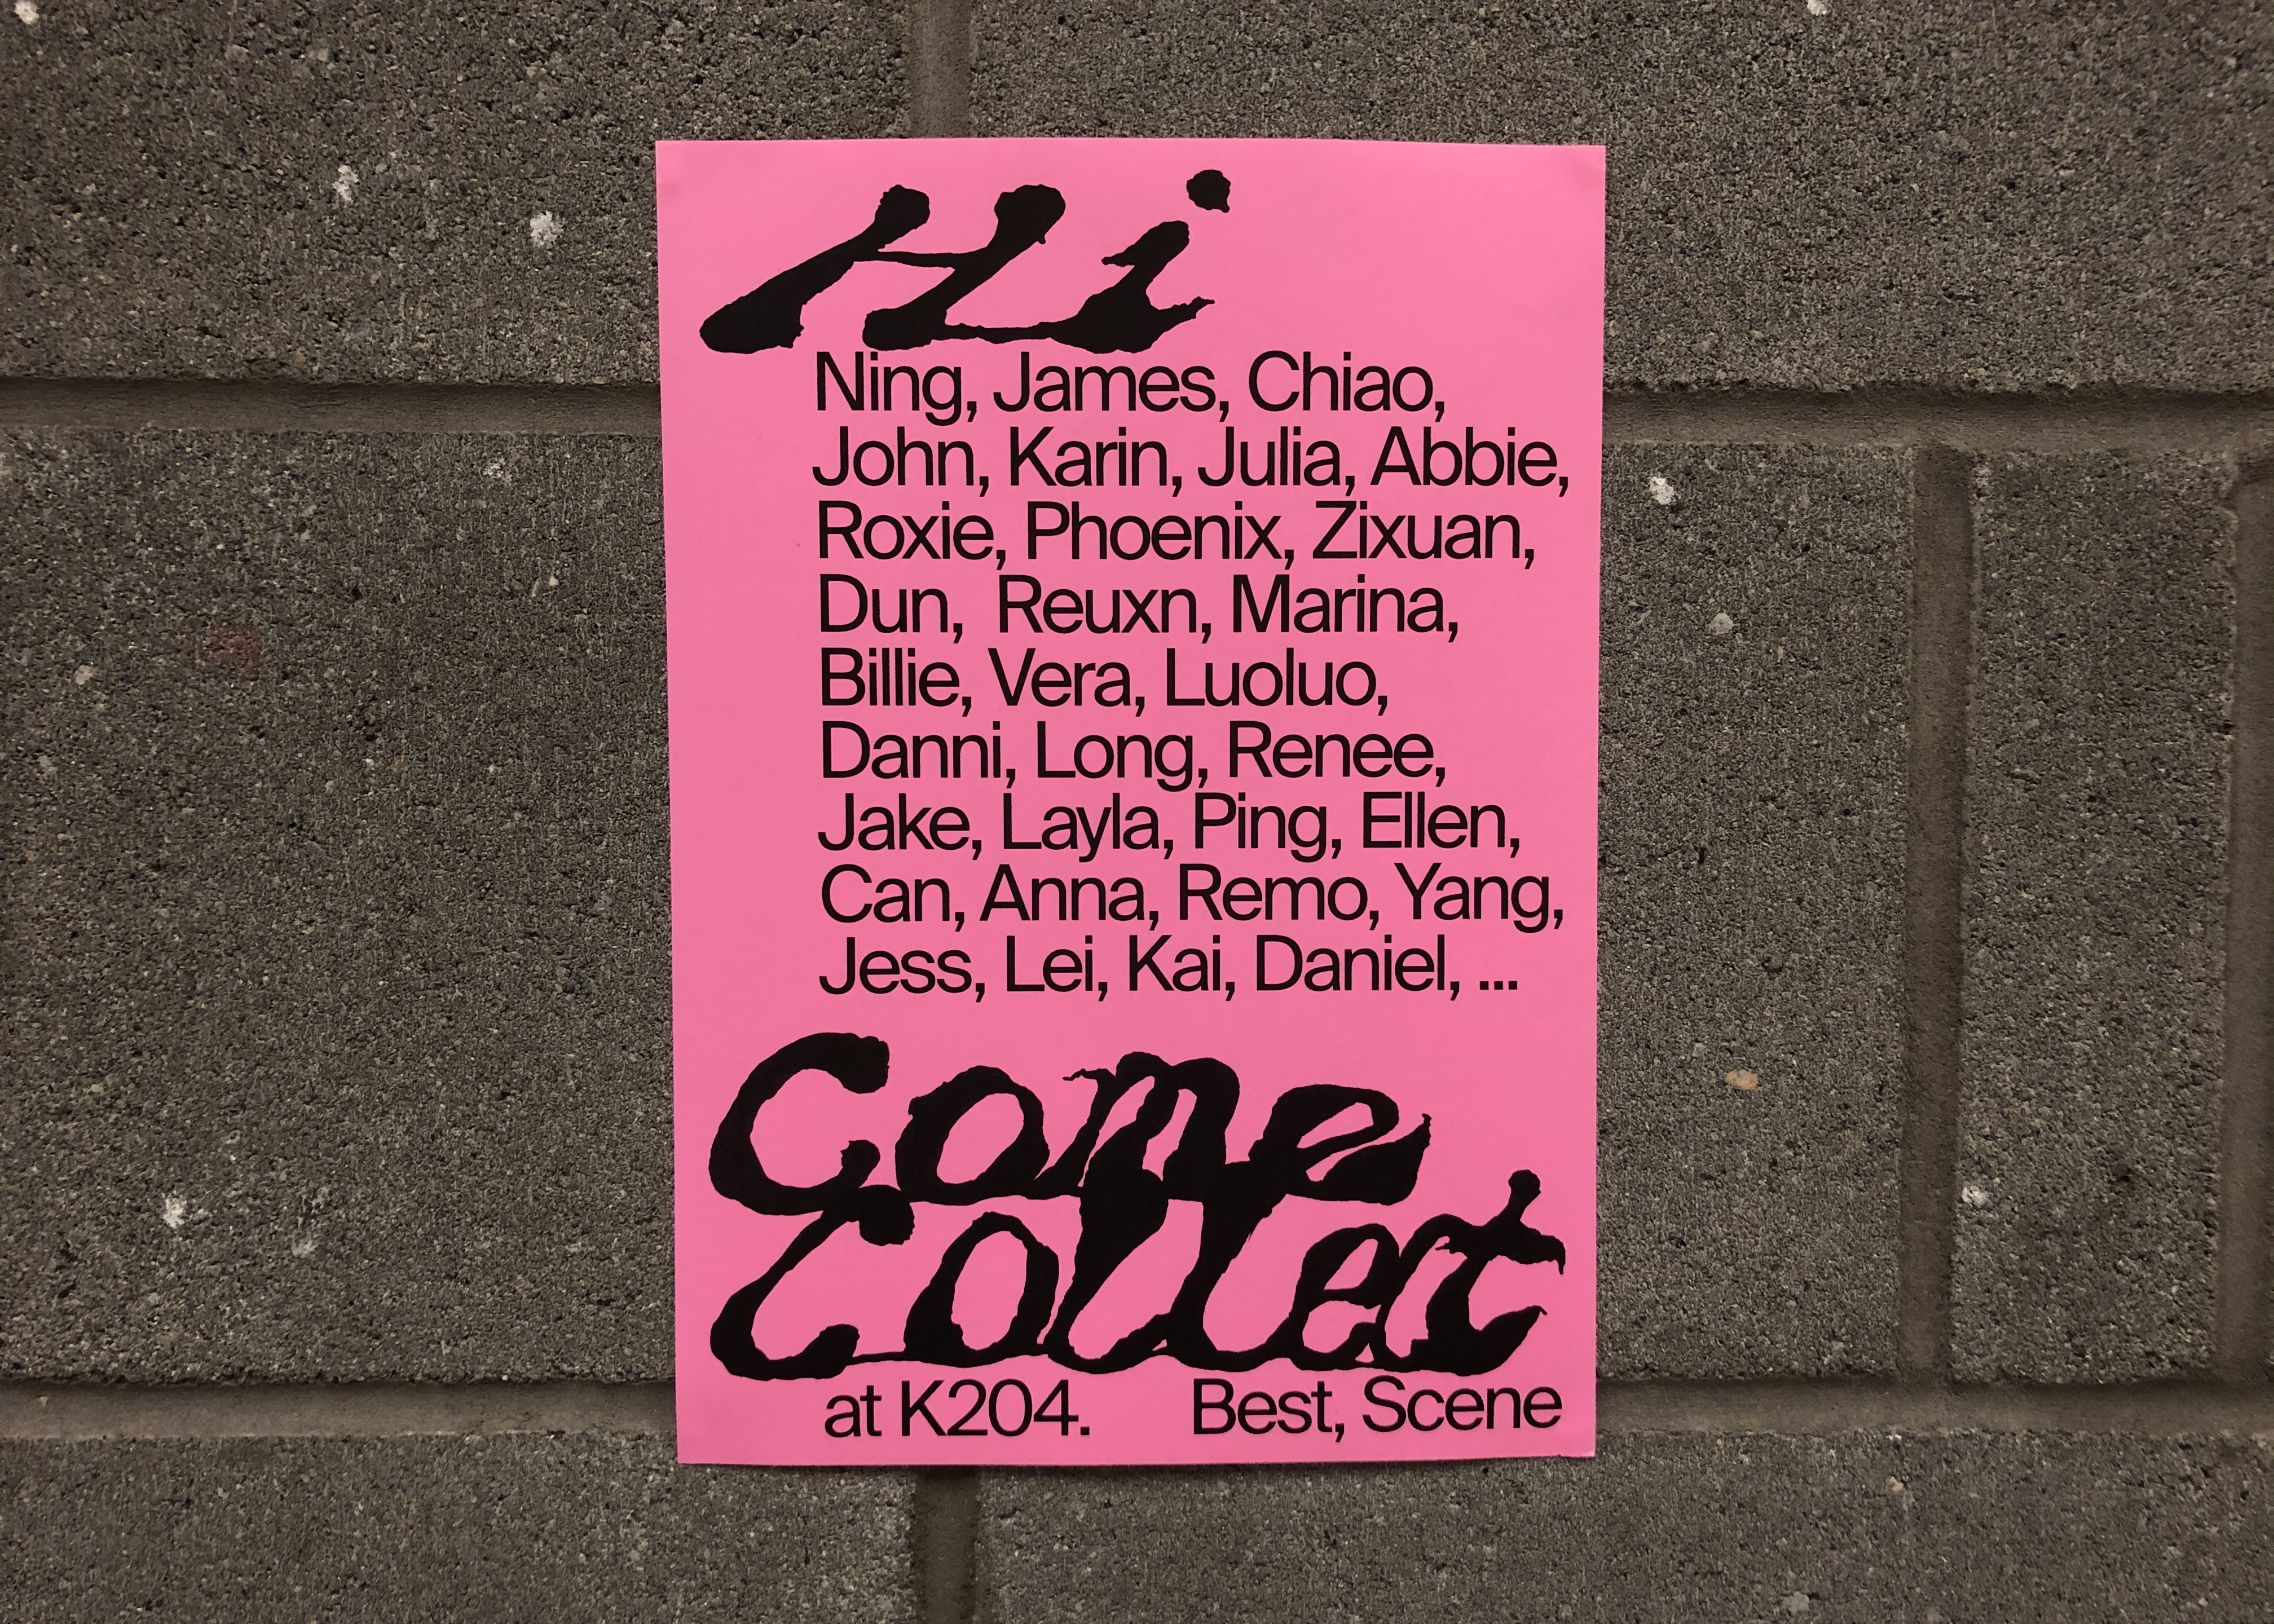 Hi
Ning, James, Chiao,
John, Karin, Julia, Abbie,
Roxie, Phoenix, Zixuan,
Dun, Reuxn, Marina,
Billie, Vera, Luoluo,
Danni, Long, Renee,
Jake, Layla, Ping, Ellen,
Can, Anna, Remo, Yang,
Jess, Lei, Kai, Daniel, ...
Come
Collect
at K204. Best, Scene